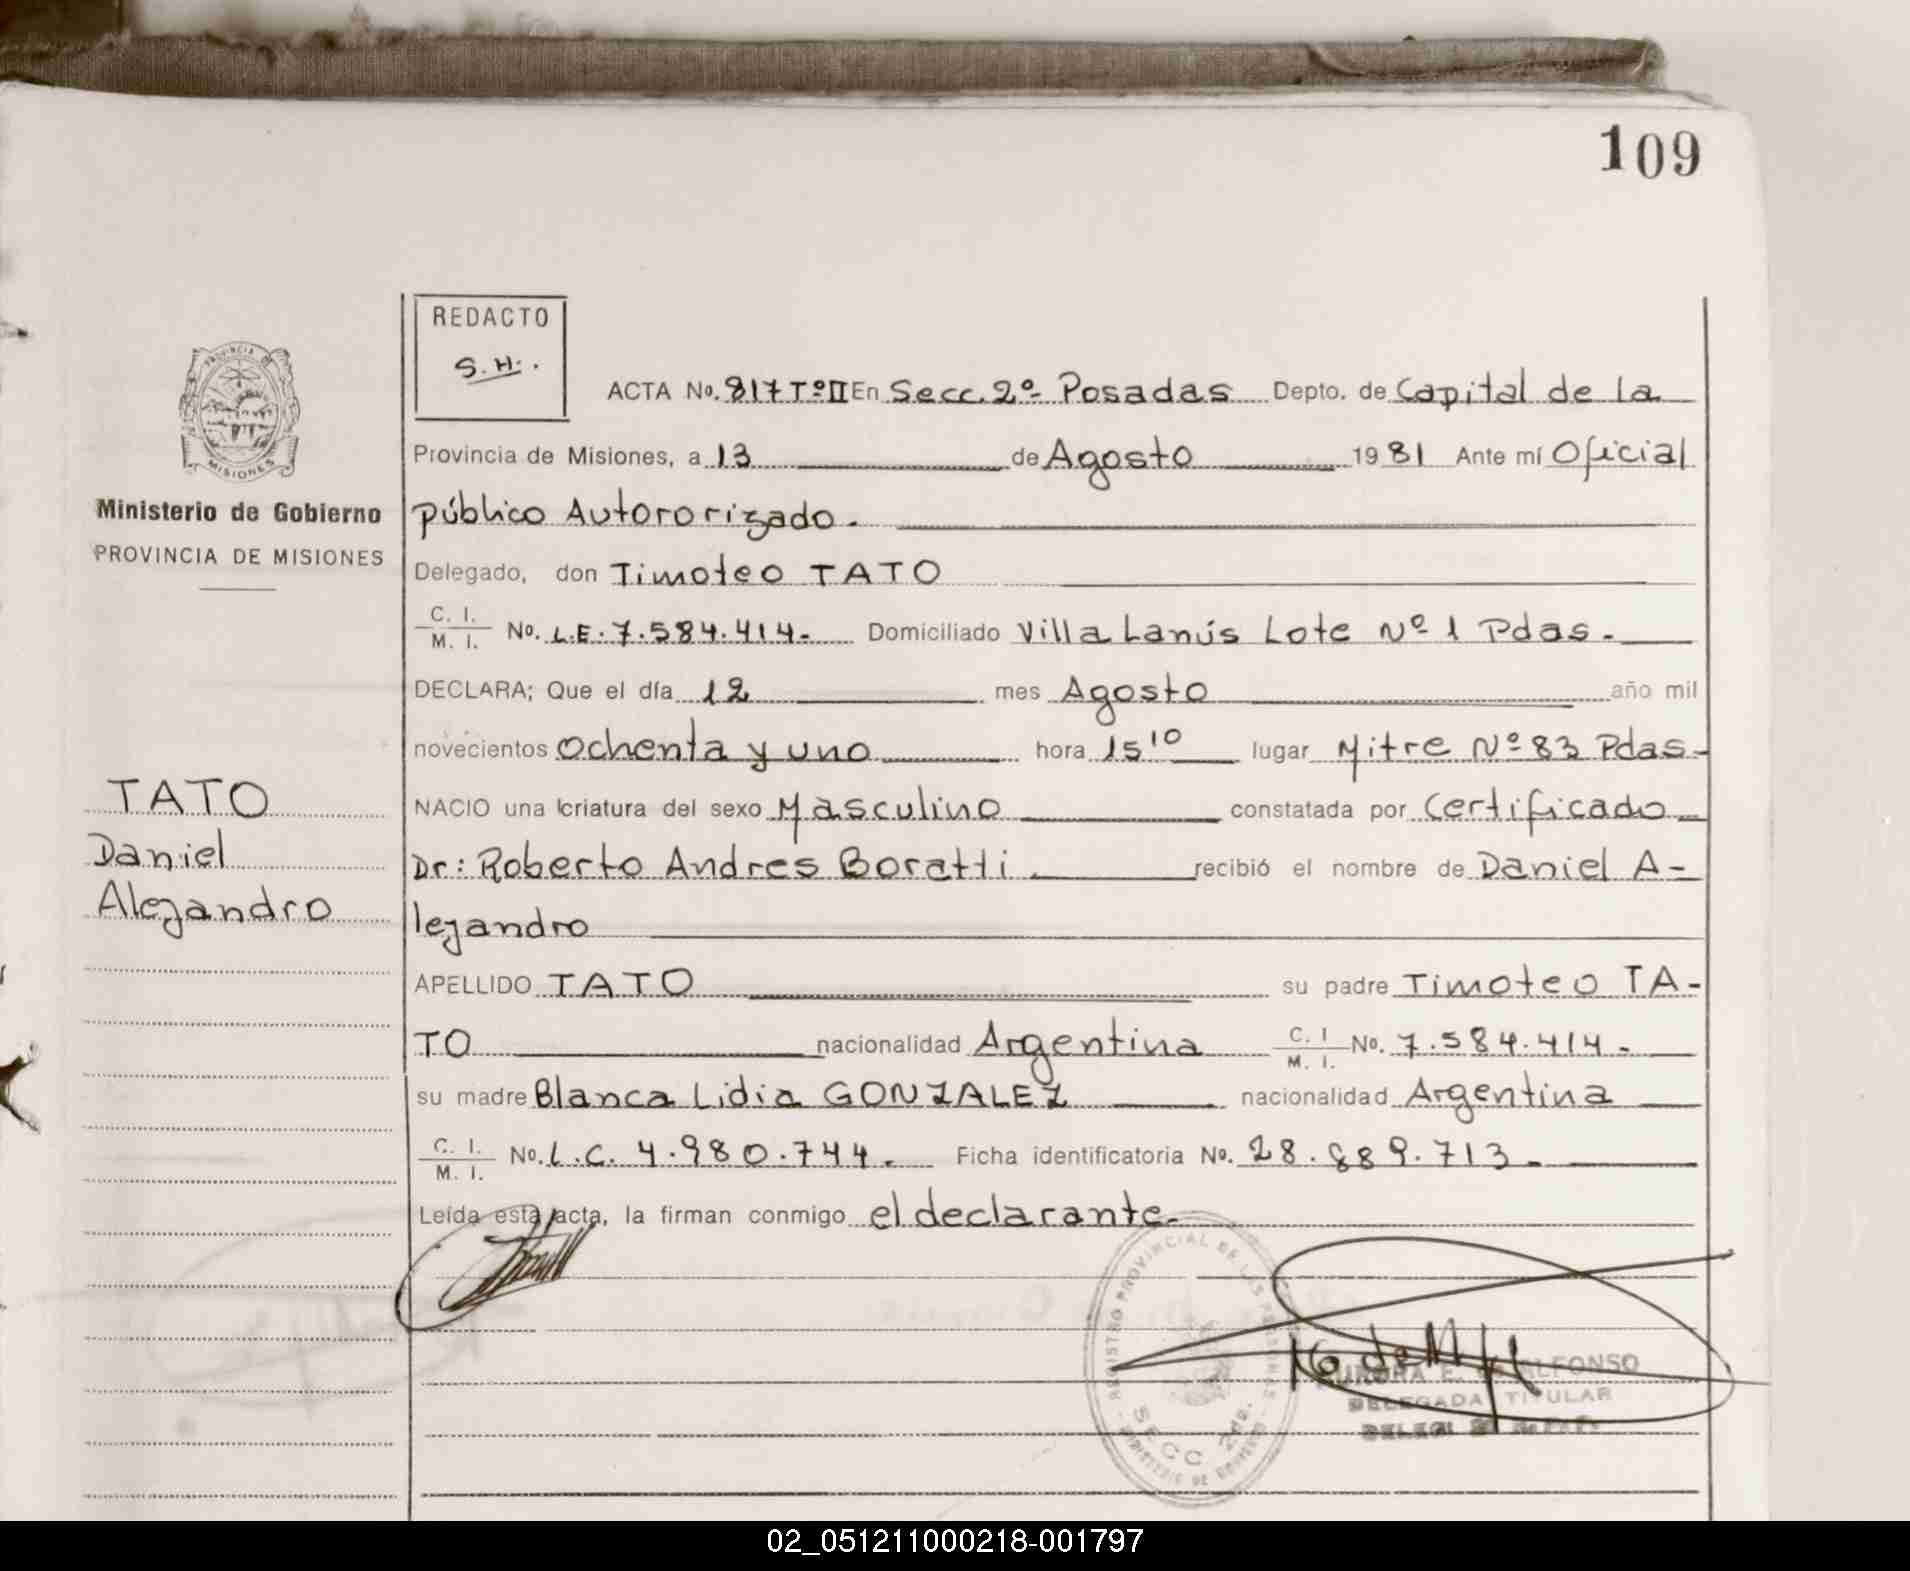 109
REDACTO
S.H.
PROVINCIA DE
MISIONES
Ministerio de Gobierno
PROVINCIA DE MISIONES
TATO
Daniel
Alejandro
ACTA No. 817 Tº II En Secc. 2º Posadas Depto. de Capital de la
Provincia de Misiones, a 13 de Agosto 1981 Ante mí Oficial
público Autororizado.
Delegado, don Timoteo TATO
C. I.
M. I. No. L.E. 7.584.414- Domiciliado Villa Lanús Lote Nº 1 Pdas.
DECLARA; Que el día 12 mes Agosto año mil
novecientos ochenta y uno hora 15 10 lugar Mitre Nº 83 Pdas-
NACIO una criatura del sexo Masculino constatada por Certificado
Dr: Roberto Andres Boratti. recibió el nombre de Daniel A-
lejandro
APELLIDO TATO su padre Timoteo TA-
TO nacionalidad Argentina C. I M. I. No. 7.584.414-
su madre Blanca Lidia GONZALEZ nacionalidad Argentina
C. I.
M. I. No. L.C. 4.980.744. Ficha identificatoria No. 28.889.713-
Leída esta acta, la firman conmigo el declarante.
REGISTRO PROVINCIAL DE LAS PERSONAS
SECC 2da.
MINISTERIO DE GOBIERNO
AURORA E. de ALFONSO
DELEGADA TITULAR
02_051211000218-001797